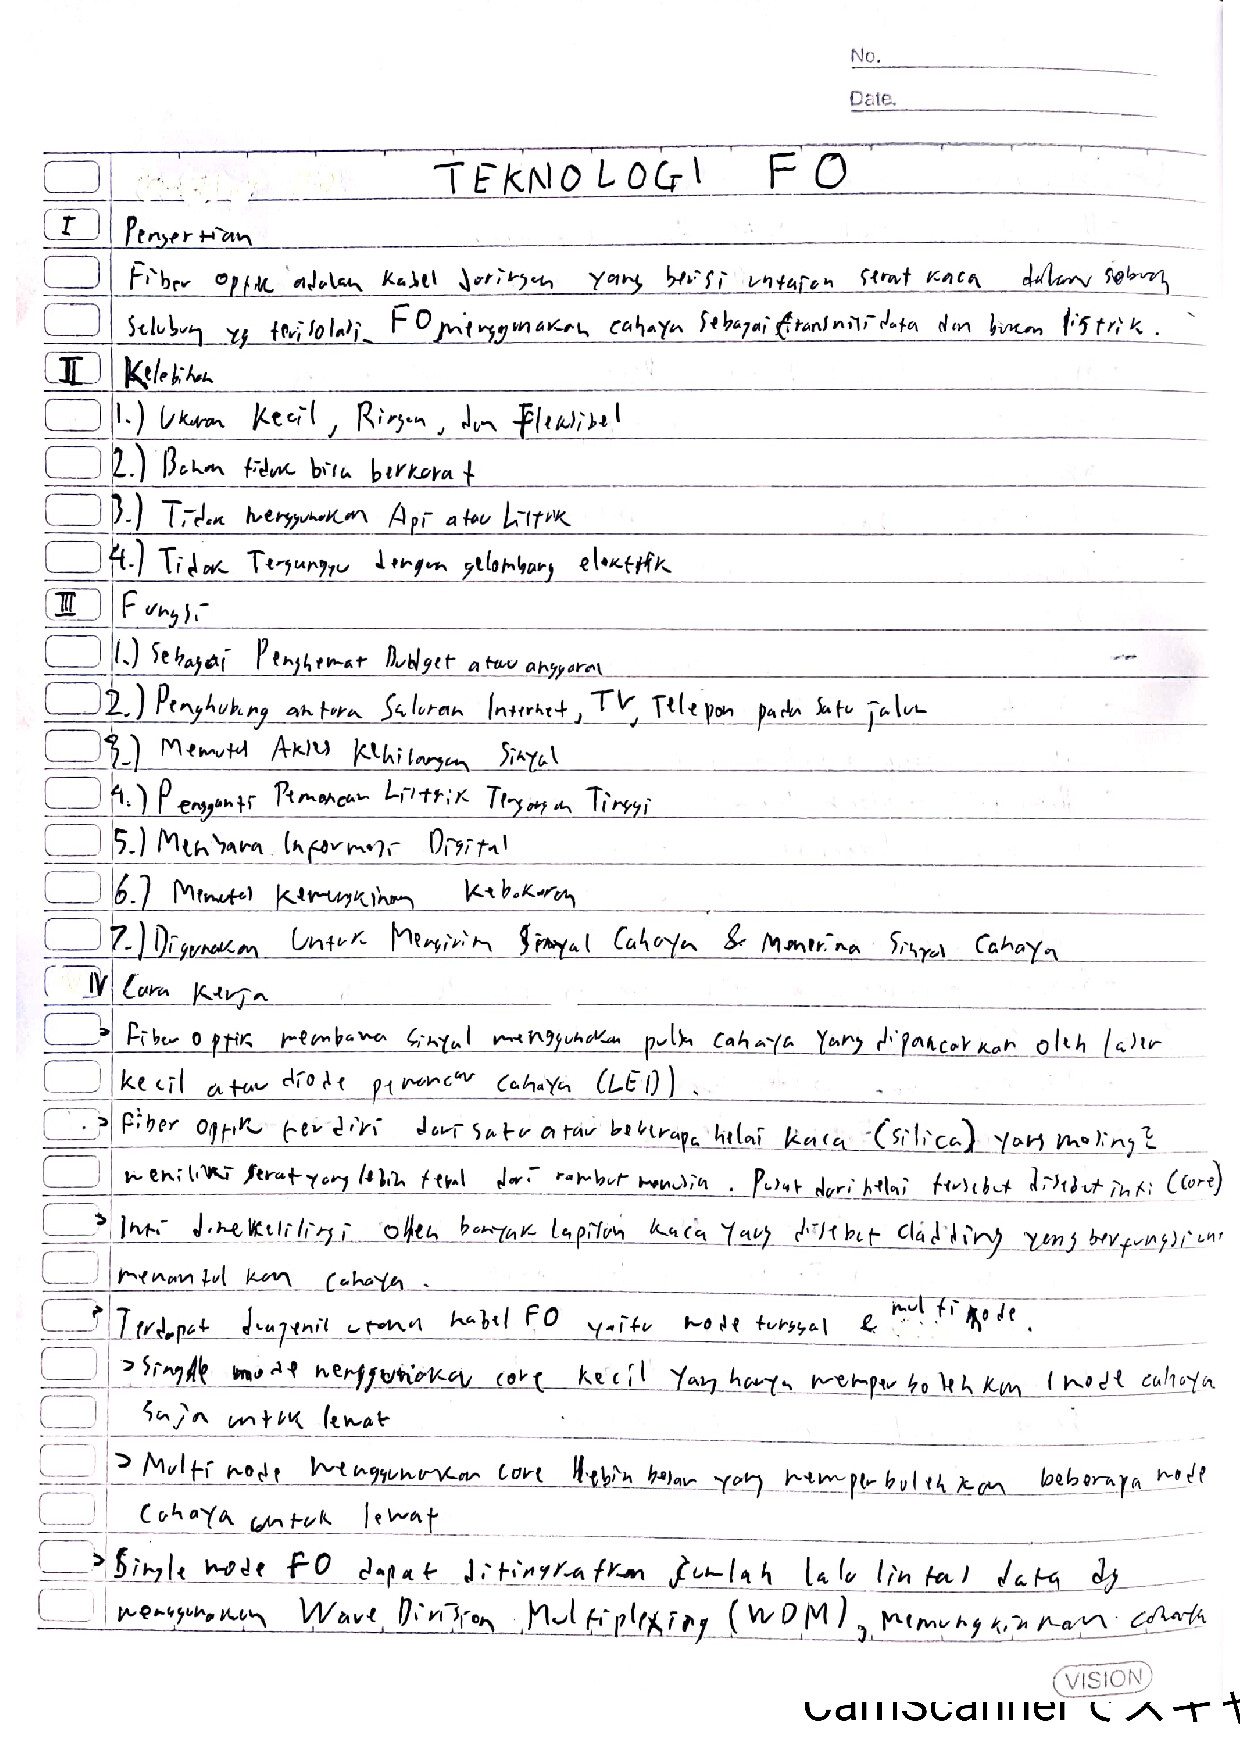 No.
Date.
TEKNOLOGI FO
I Pengertian
Fiber optik adalah kabel jaringan yang berisi untaian serat kaca dalam sebuah
selubung yg terisolasi. FO menggunakan cahaya sebagai transmisi data dan bukan listrik.
II Kelebihan
1.) Ukuran Kecil, Ringan, dan Fleksibel
2.) Bahan tidak bisa berkarat
3.) Tidak menggunakan Api atau Listrik
4.) Tidak Terganggu dengan gelombang elektrik
III Fungsi
1.) Sebagai Penghemat Budget atau anggaran
2.) Penghubung antara Saluran Internet, TV, Telepon pada satu jalur
3.) Memutus Akses Kehilangan Sinyal
4.) Pengganti Pemancar Listrik Tegangan Tinggi
5.) Membawa Informasi Digital
6.) Memutus Kemungkinan Kebakaran
7.) Digunakan Untuk Mengirim Sinyal Cahaya & Menerima Sinyal Cahaya
IV Cara Kerja
> Fiber optik membawa sinyal menggunakan pulsa cahaya yang dipancarkan oleh laser
kecil atau diode pemancar cahaya (LED).
> Fiber optik terdiri dari satu atau beberapa helai kaca (silica) yang masing2
memiliki serat yang lebih tebal dari rambut manusia. Pusat dari helai tersebut disebut inti (core)
> Inti dikelilingi oleh banyak lapisan kaca yang disebut cladding yang berfungsi
memantulkan cahaya.
> Terdapat dua jenis utama kabel FO yaitu mode tunggal & multi mode.
> Single mode menggunakan core kecil yang hanya memperbolehkan 1 mode cahaya
saja untuk lewat
> Multi mode menggunakan core lebih besar yang memperbolehkan beberapa mode
Cahaya untuk lewat
> Single mode FO dapat ditingkatkan jumlah lalu lintas data dg
menggunakan Wave Division Multiplexing (WDM), memungkinkan cahaya
VISION